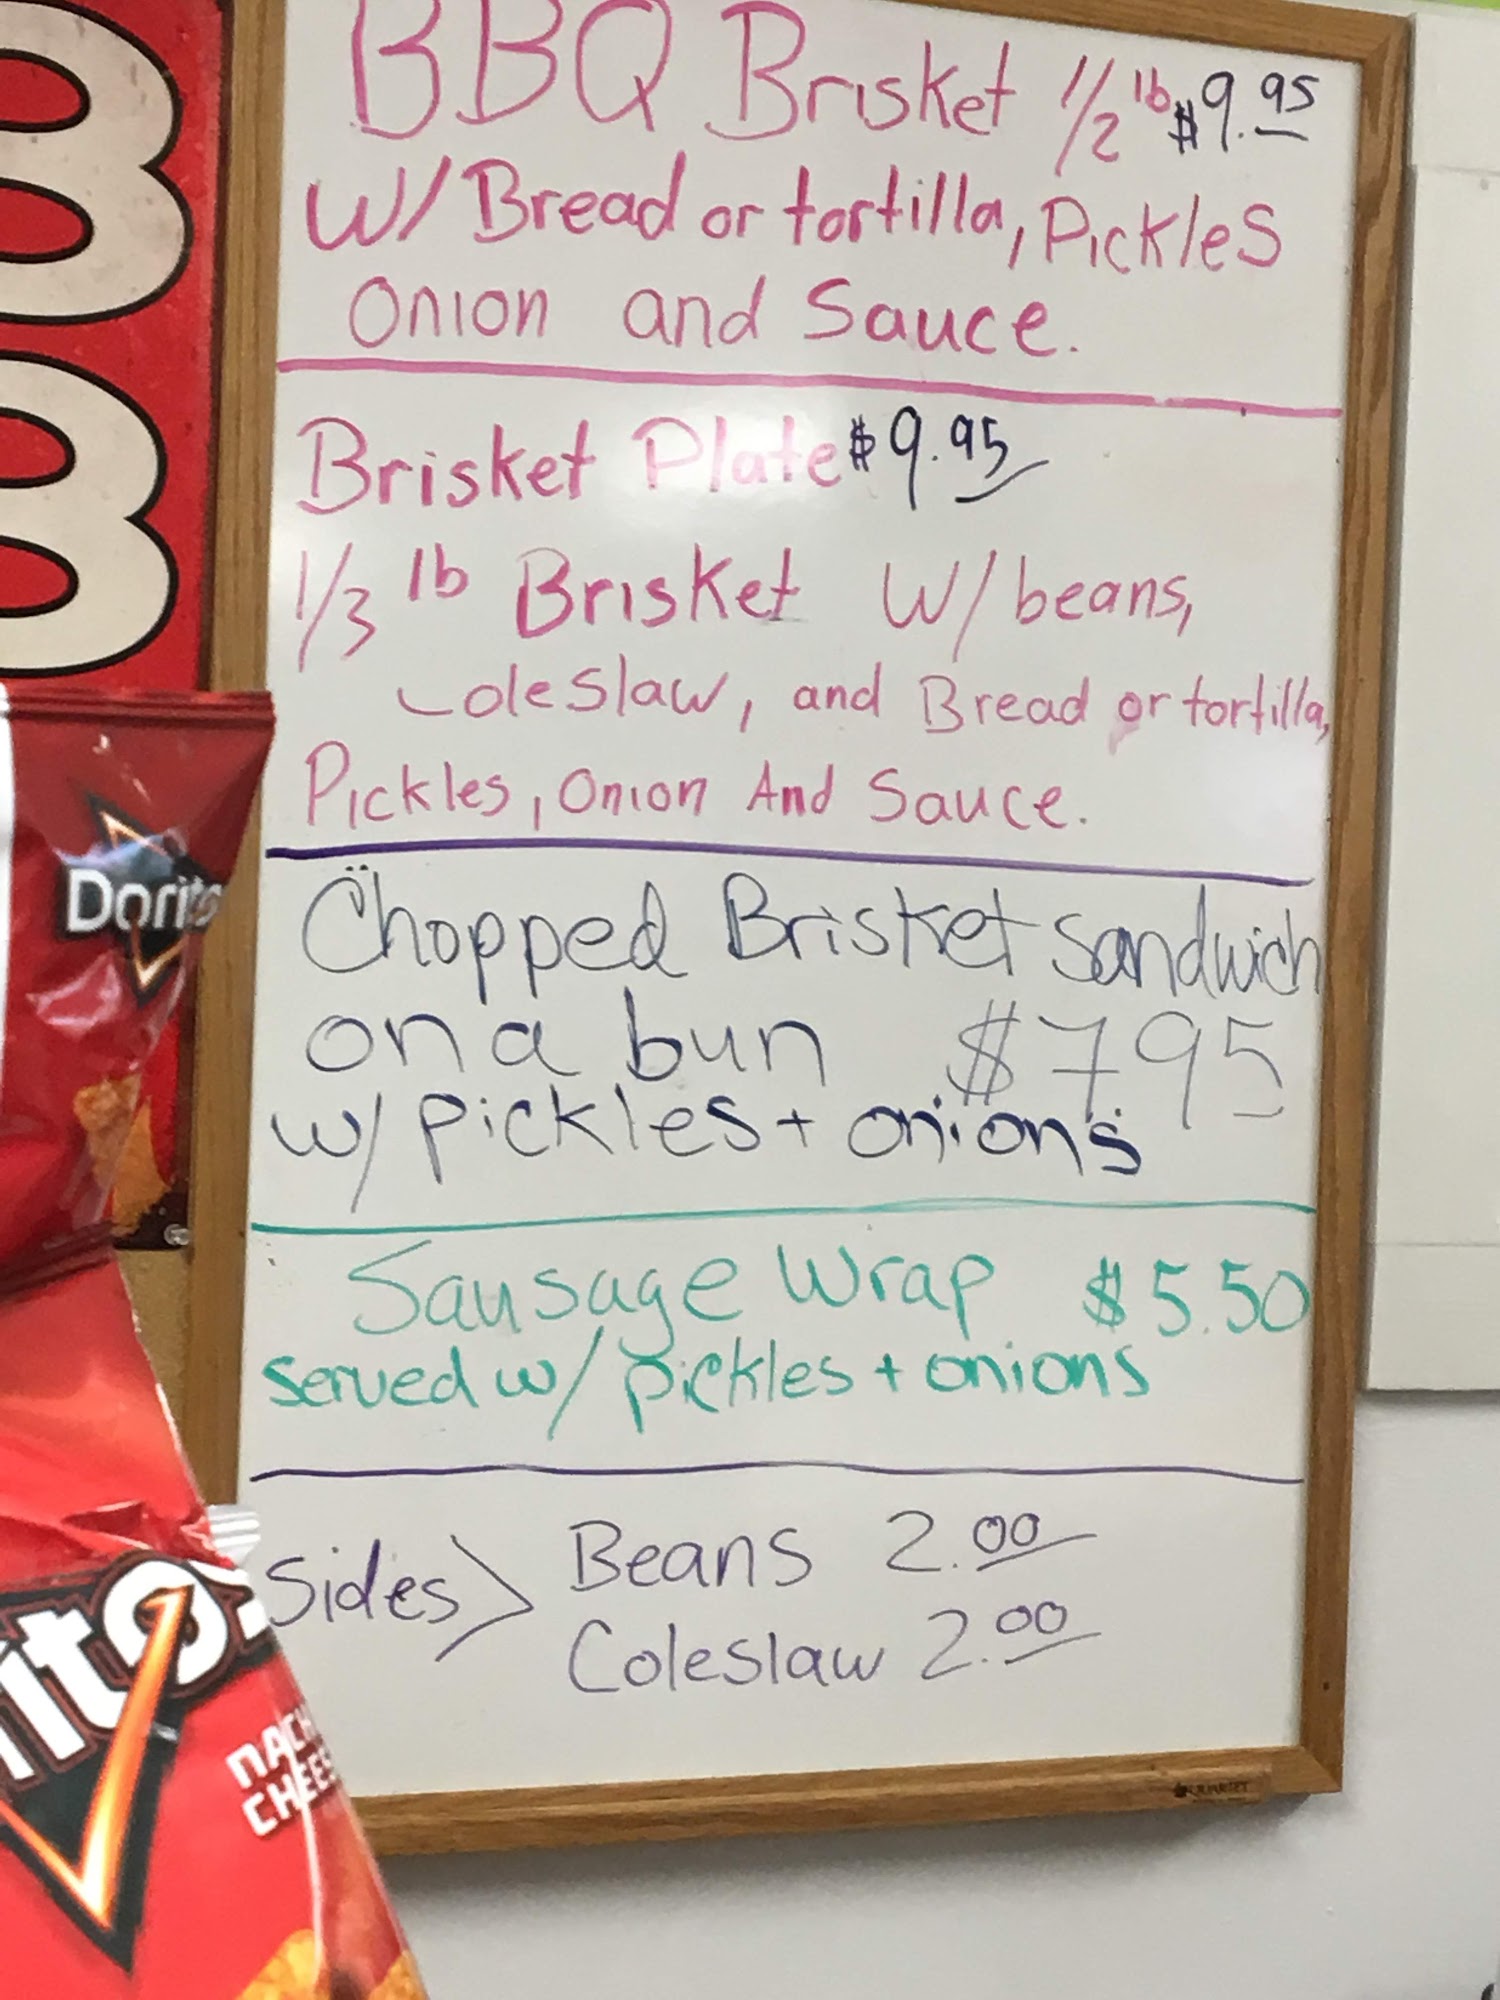 BBQ Brisket 1/2 lb $9.95
W/ Bread or tortilla, Pickles
Onion and Sauce.
Brisket Plate $9.95
1/3 lb Brisket W/ beans,
Coleslaw, and Bread or tortilla,
Pickles, Onion And Sauce.
Chopped Brisket Sandwich
on a bun $7.95
w/ pickles + onions
Sausage Wrap $5.50
served w/ pickles + onions
Sides > Beans 2.00
Coleslaw 2.00
Doritos
itos
NACH
CHEES
QUARTET